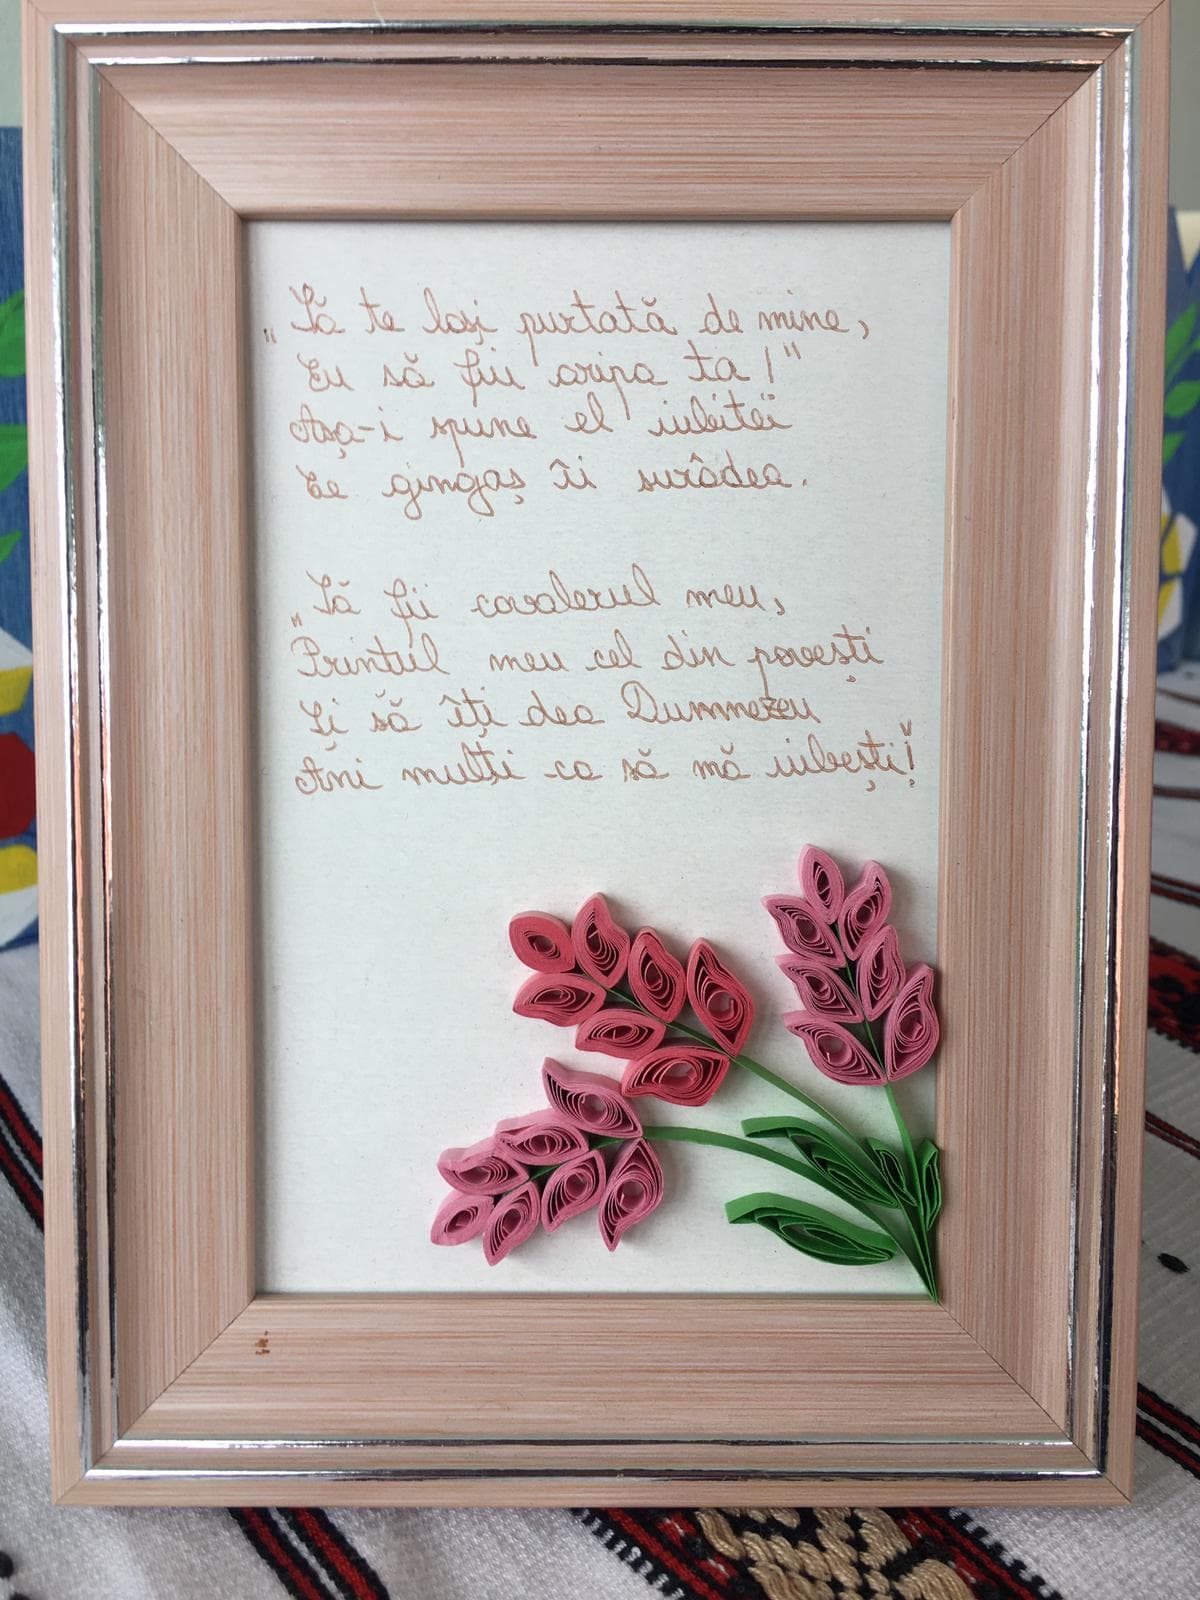 „Să te lași purtată de mine,
Eu să fiu aripa ta!"
Așa-i spune el iubitei
Ce gingaș îi surâdea.
„Să fii cavalerul meu,
Prințul meu cel din povești
Și să îți dea Dumnezeu
Ani mulți ca să mă iubești!"